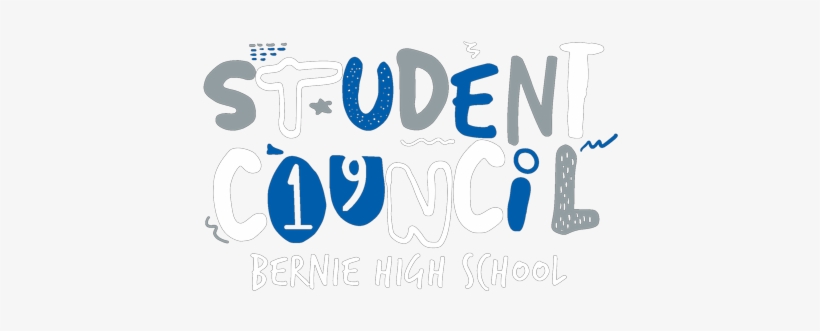 STUDENT
COUNCIL
19
BERNIE HIGH SCHOOL